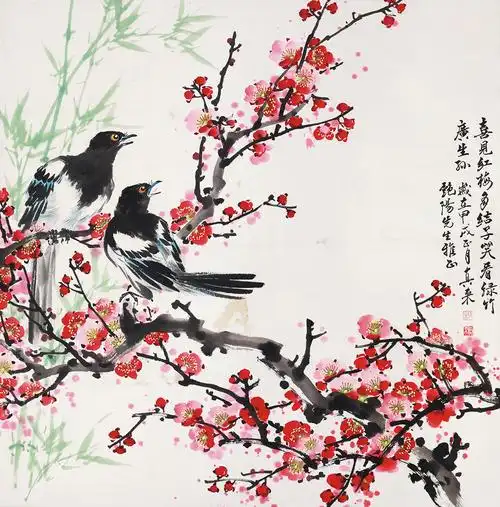 喜見紅梅多結子笑看緑竹
廣生孫 歲在甲戌正月
艷陽先生雅正